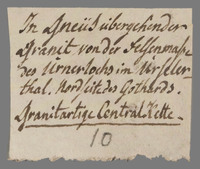 In Gneus übergehender
Granit von der Felsenmasse
des Urnerlochs im Urseler
thal. Nordseite des Gothards.
Granitartige Central Kette.
10